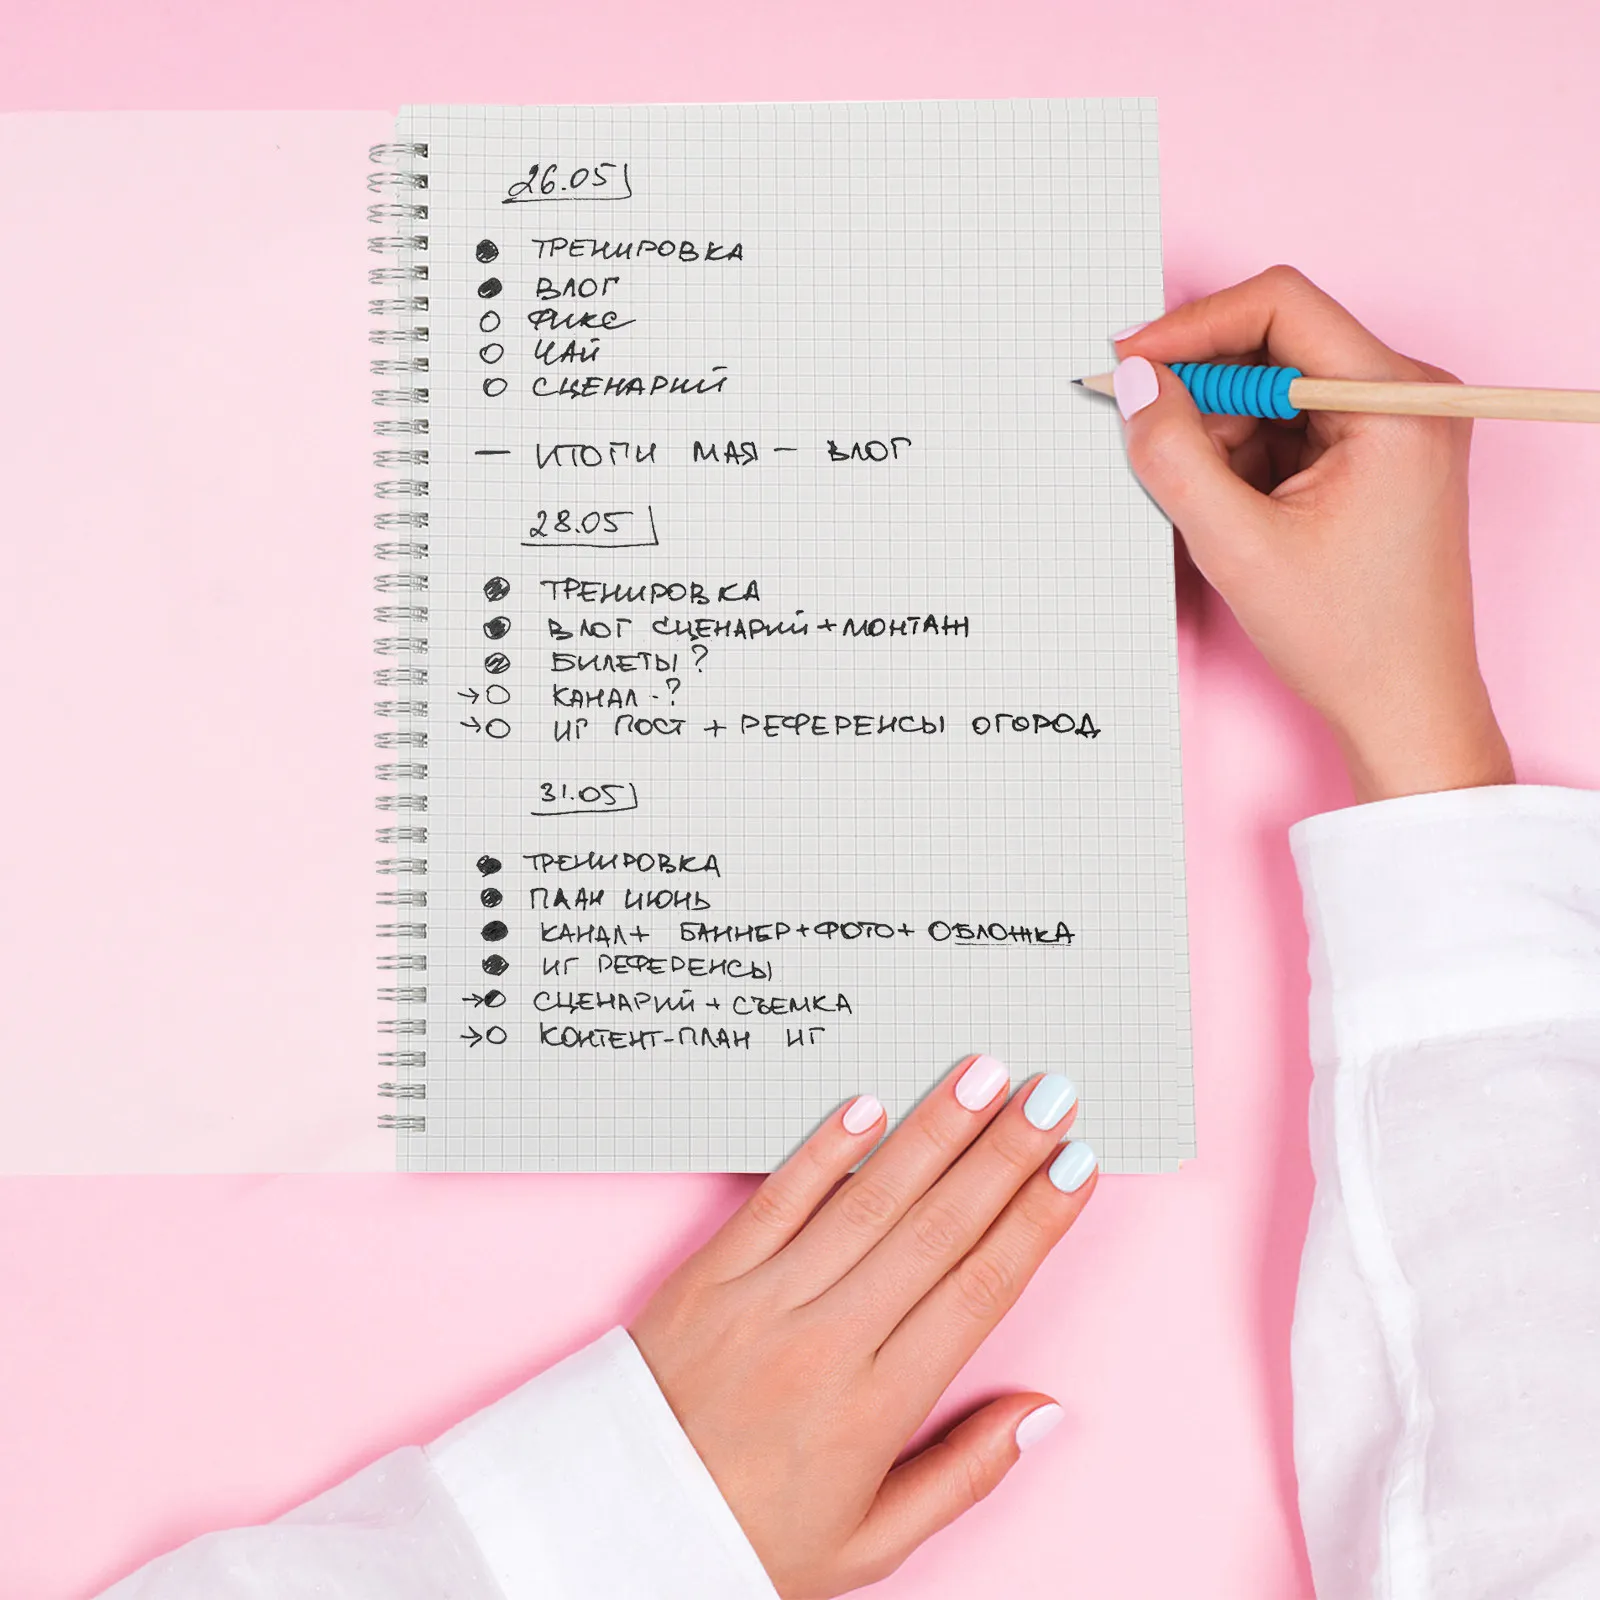 26.05
ТРЕНИРОВКА
ВЛОГ
ФИКС
ЧАЙ
СЦЕНАРИЙ
— ИТОГИ МАЯ — ВЛОГ
28.05
ТРЕНИРОВКА
ВЛОГ СЦЕНАРИЙ+МОНТАЖ
БИЛЕТЫ?
→ КАНАЛ-?
→ ИГ ПОСТ + РЕФЕРЕНСЫ ОГОРОД
31.05
ТРЕНИРОВКА
ПЛАН ИЮНЬ
КАНАЛ+ БАННЕР+ФОТО+ ОБЛОЖКА
ИГ РЕФЕРЕНСЫ
→ СЦЕНАРИЙ + СЪЕМКА
→ КОНТЕНТ-ПЛАН ИГ